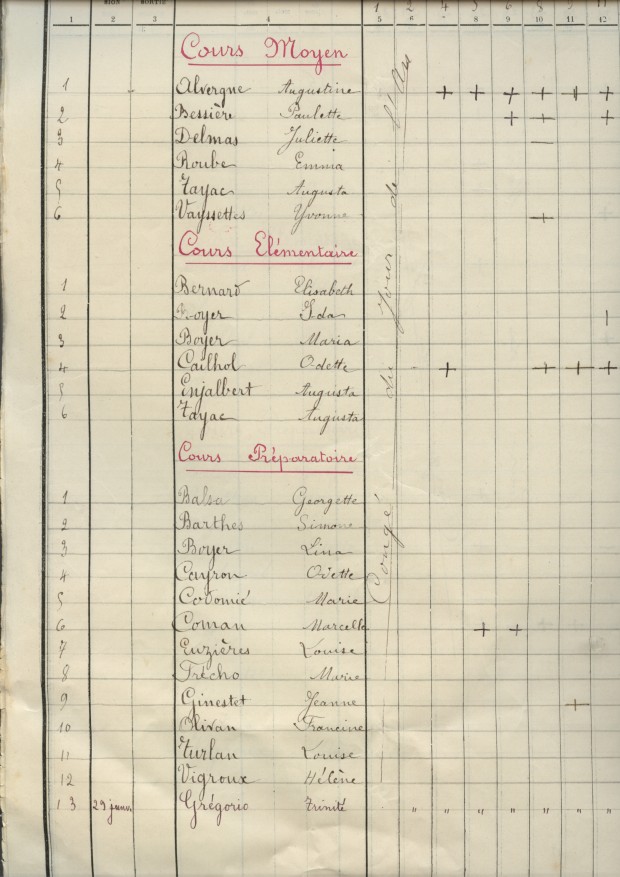 1 2 3 4 5 6 7 8 9 10 11 12
Cours Moyen
1 Alvergne Augustine + + + + + +
2 Bessière Paulette + + +
3 Delmas Juliette —
4 Roube Emma
5 Tayac Augusta
6 Vayssettes Yvonne +
Cours Elémentaire
1 Bernard Elisabeth
2 Royer Ida
3 Boyer Maria
4 Cailhol Odette + + + +
5 Enjalbert Augusta
6 Tayac Augusta
Cours Préparatoire
1 Balsa Georgette
2 Barthes Simone
3 Boyer Lina
4 Cayron Odette
5 Codomié Marie
6 Coman Marcelle + +
7 Euzières Louise
8 Frécho Marie
9 Ginestet Jeanne +
10 Olivan Francine
11 Turlan Louise
12 Vigroux Hélène
13 29 janv Grégorio Trinité " " " " " " "
Congé du Jour de l'An